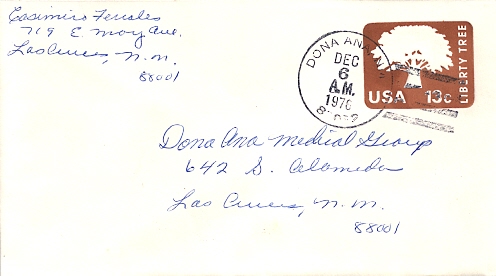 Casimiro
719 E May Ave.
Las Cruces, N.M.
88001
DONA ANA, N
DEC
6
A.M.
1976
USA 13c
LIBERTY TREE
Dona Ana Medical Group
642 S. Alameda
Las Cruces, N.M.
88001